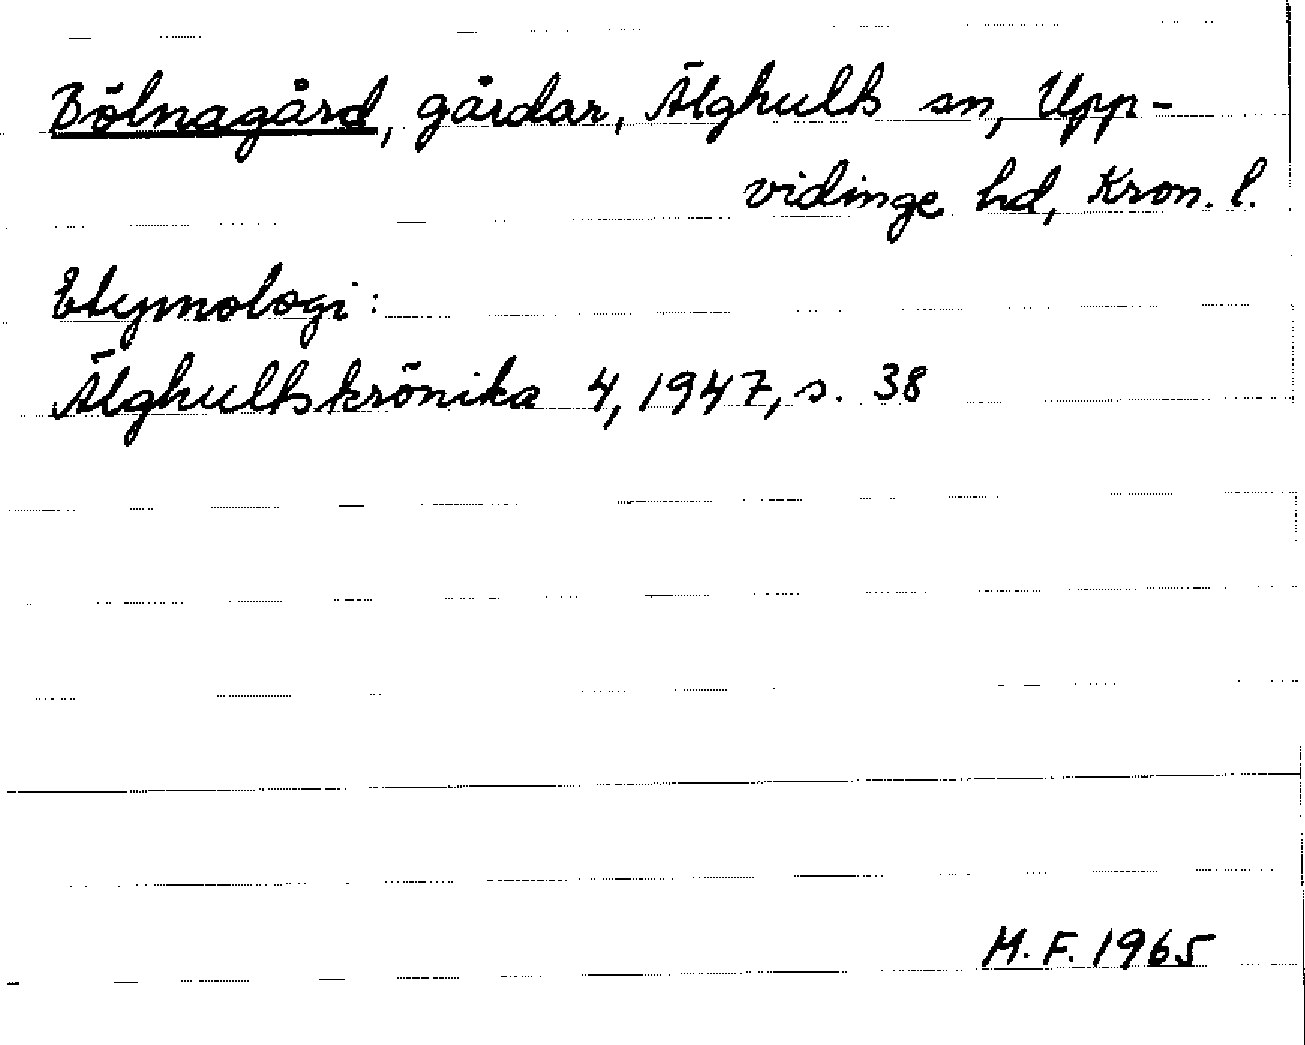 Bölnagård, gårdar, Älghults sn, Upp-
vidinge hd, Kron. l.
Etymologi:
Älghultskrönika 4, 1947, s. 38
M.F. 1965